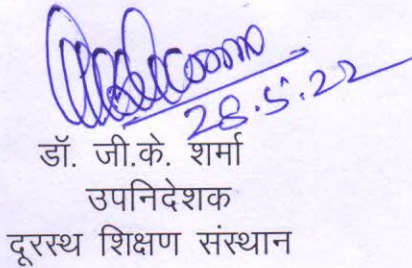 28.5.22
डॉ. जी.के. शर्मा
उपनिदेशक
दूरस्थ शिक्षण संस्थान